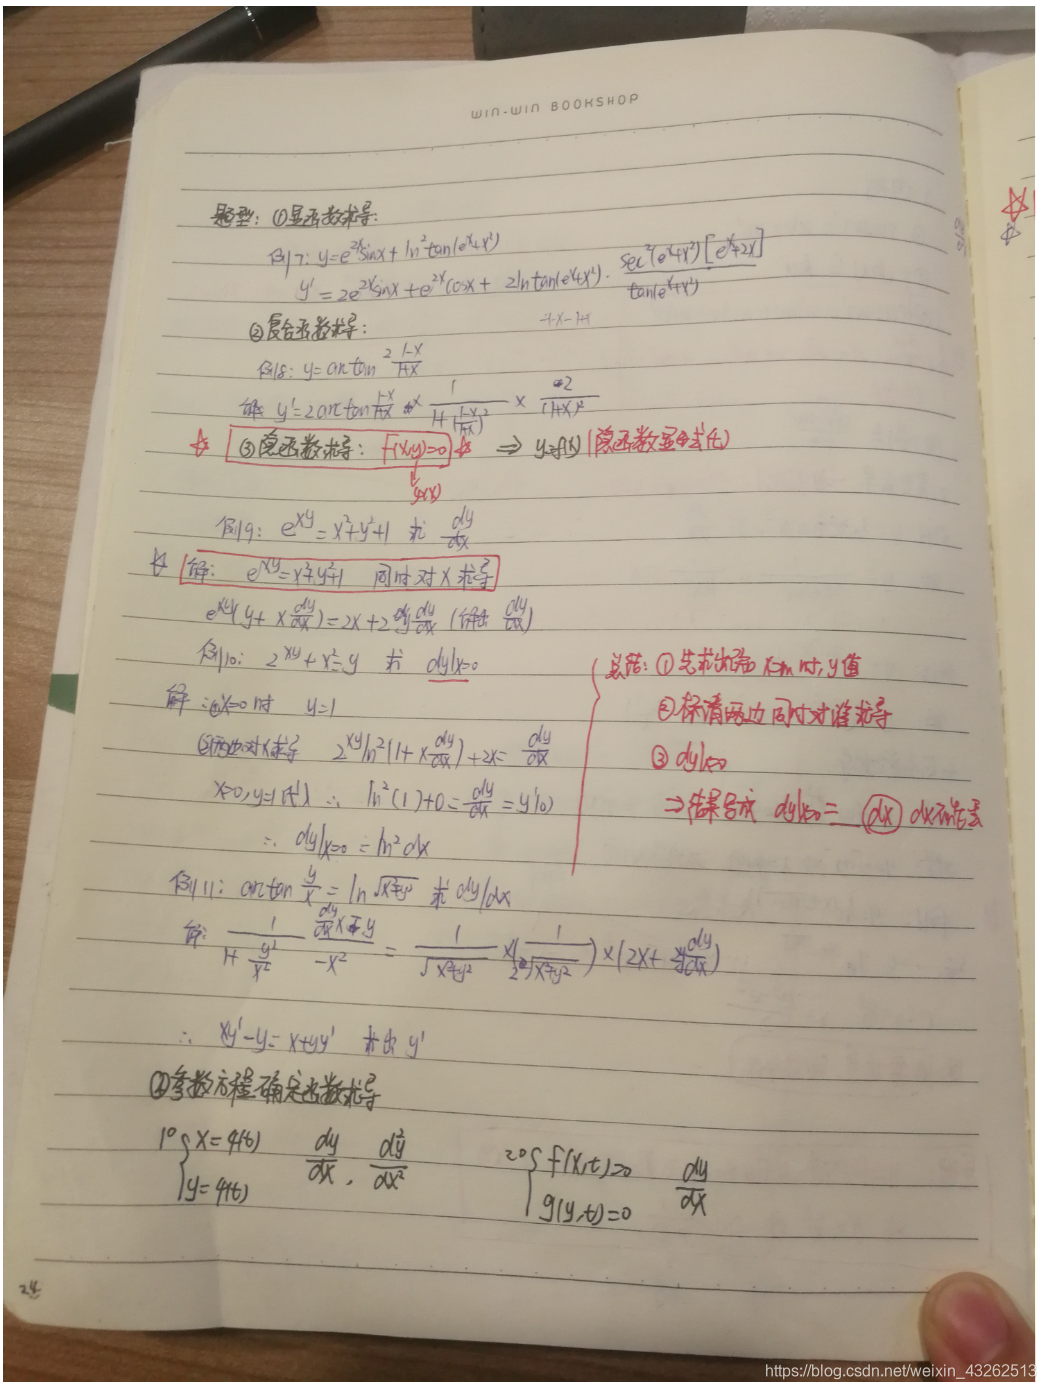 WIN-WIN BOOKSHOP
题型: ①显函数求导:
例7: y=e^{2x}sinx+ln²tan(e^x+x²)
y'=2e^{2x}sinx+e^{2x}cosx+ 2lntan(e^x+x²)· sec²(e^x+x²)[e^x+2x] / tan(e^x+x²)
②复合函数求导:
例8: y=arctan² (1-x)/(1+x)
解: y'=2arctan (1-x)/(1+x) × 1/(1+((1-x)/(1+x))²) × -2/(1+x)²
☆ ③隐函数求导: F(x,y)=0 ☆ ⇒ y=f(x) (隐函数显式化)
φ(x)
例9: e^{xy}=x²+y²+1 求 dy/dx
☆ 解: e^{xy}=x²+y²+1 同时对x求导
e^{xy}(y+x dy/dx)=2x+2y dy/dx (解出 dy/dx)
例10: 2^{xy}+x²=y 求 dy|x=0
解:①x=0时 y=1
②两边对x求导 2^{xy}ln²(1+x dy/dx)+2x= dy/dx
x=0,y=1代入 ∴ ln²(1)+0= dy/dx =y'(0)
∴ dy|x=0 =ln²dx
总结: ① 先求出 x=m时,y值
② 标清两边同时对谁求导
③ dy|x=0
⇒结果写成 dy|x=0=__(dx) dx不能丢
例11: arctan y/x = ln√(x²+y²) 求 dy/dx
解: 1/(1+y²/x²) (dy/dx x-y)/-x² = 1/√(x²+y²) ×(1/2√(x²+y²))×(2x+2y dy/dx)
∴ xy'-y=x+yy' 求出 y'
④参数方程确定函数求导
1° { x=φ(t) dy/dx , d²y/dx²
y=φ(t)
2° { f(x,t)=0 dy/dx
g(y,t)=0
24
https://blog.csdn.net/weixin_43262513